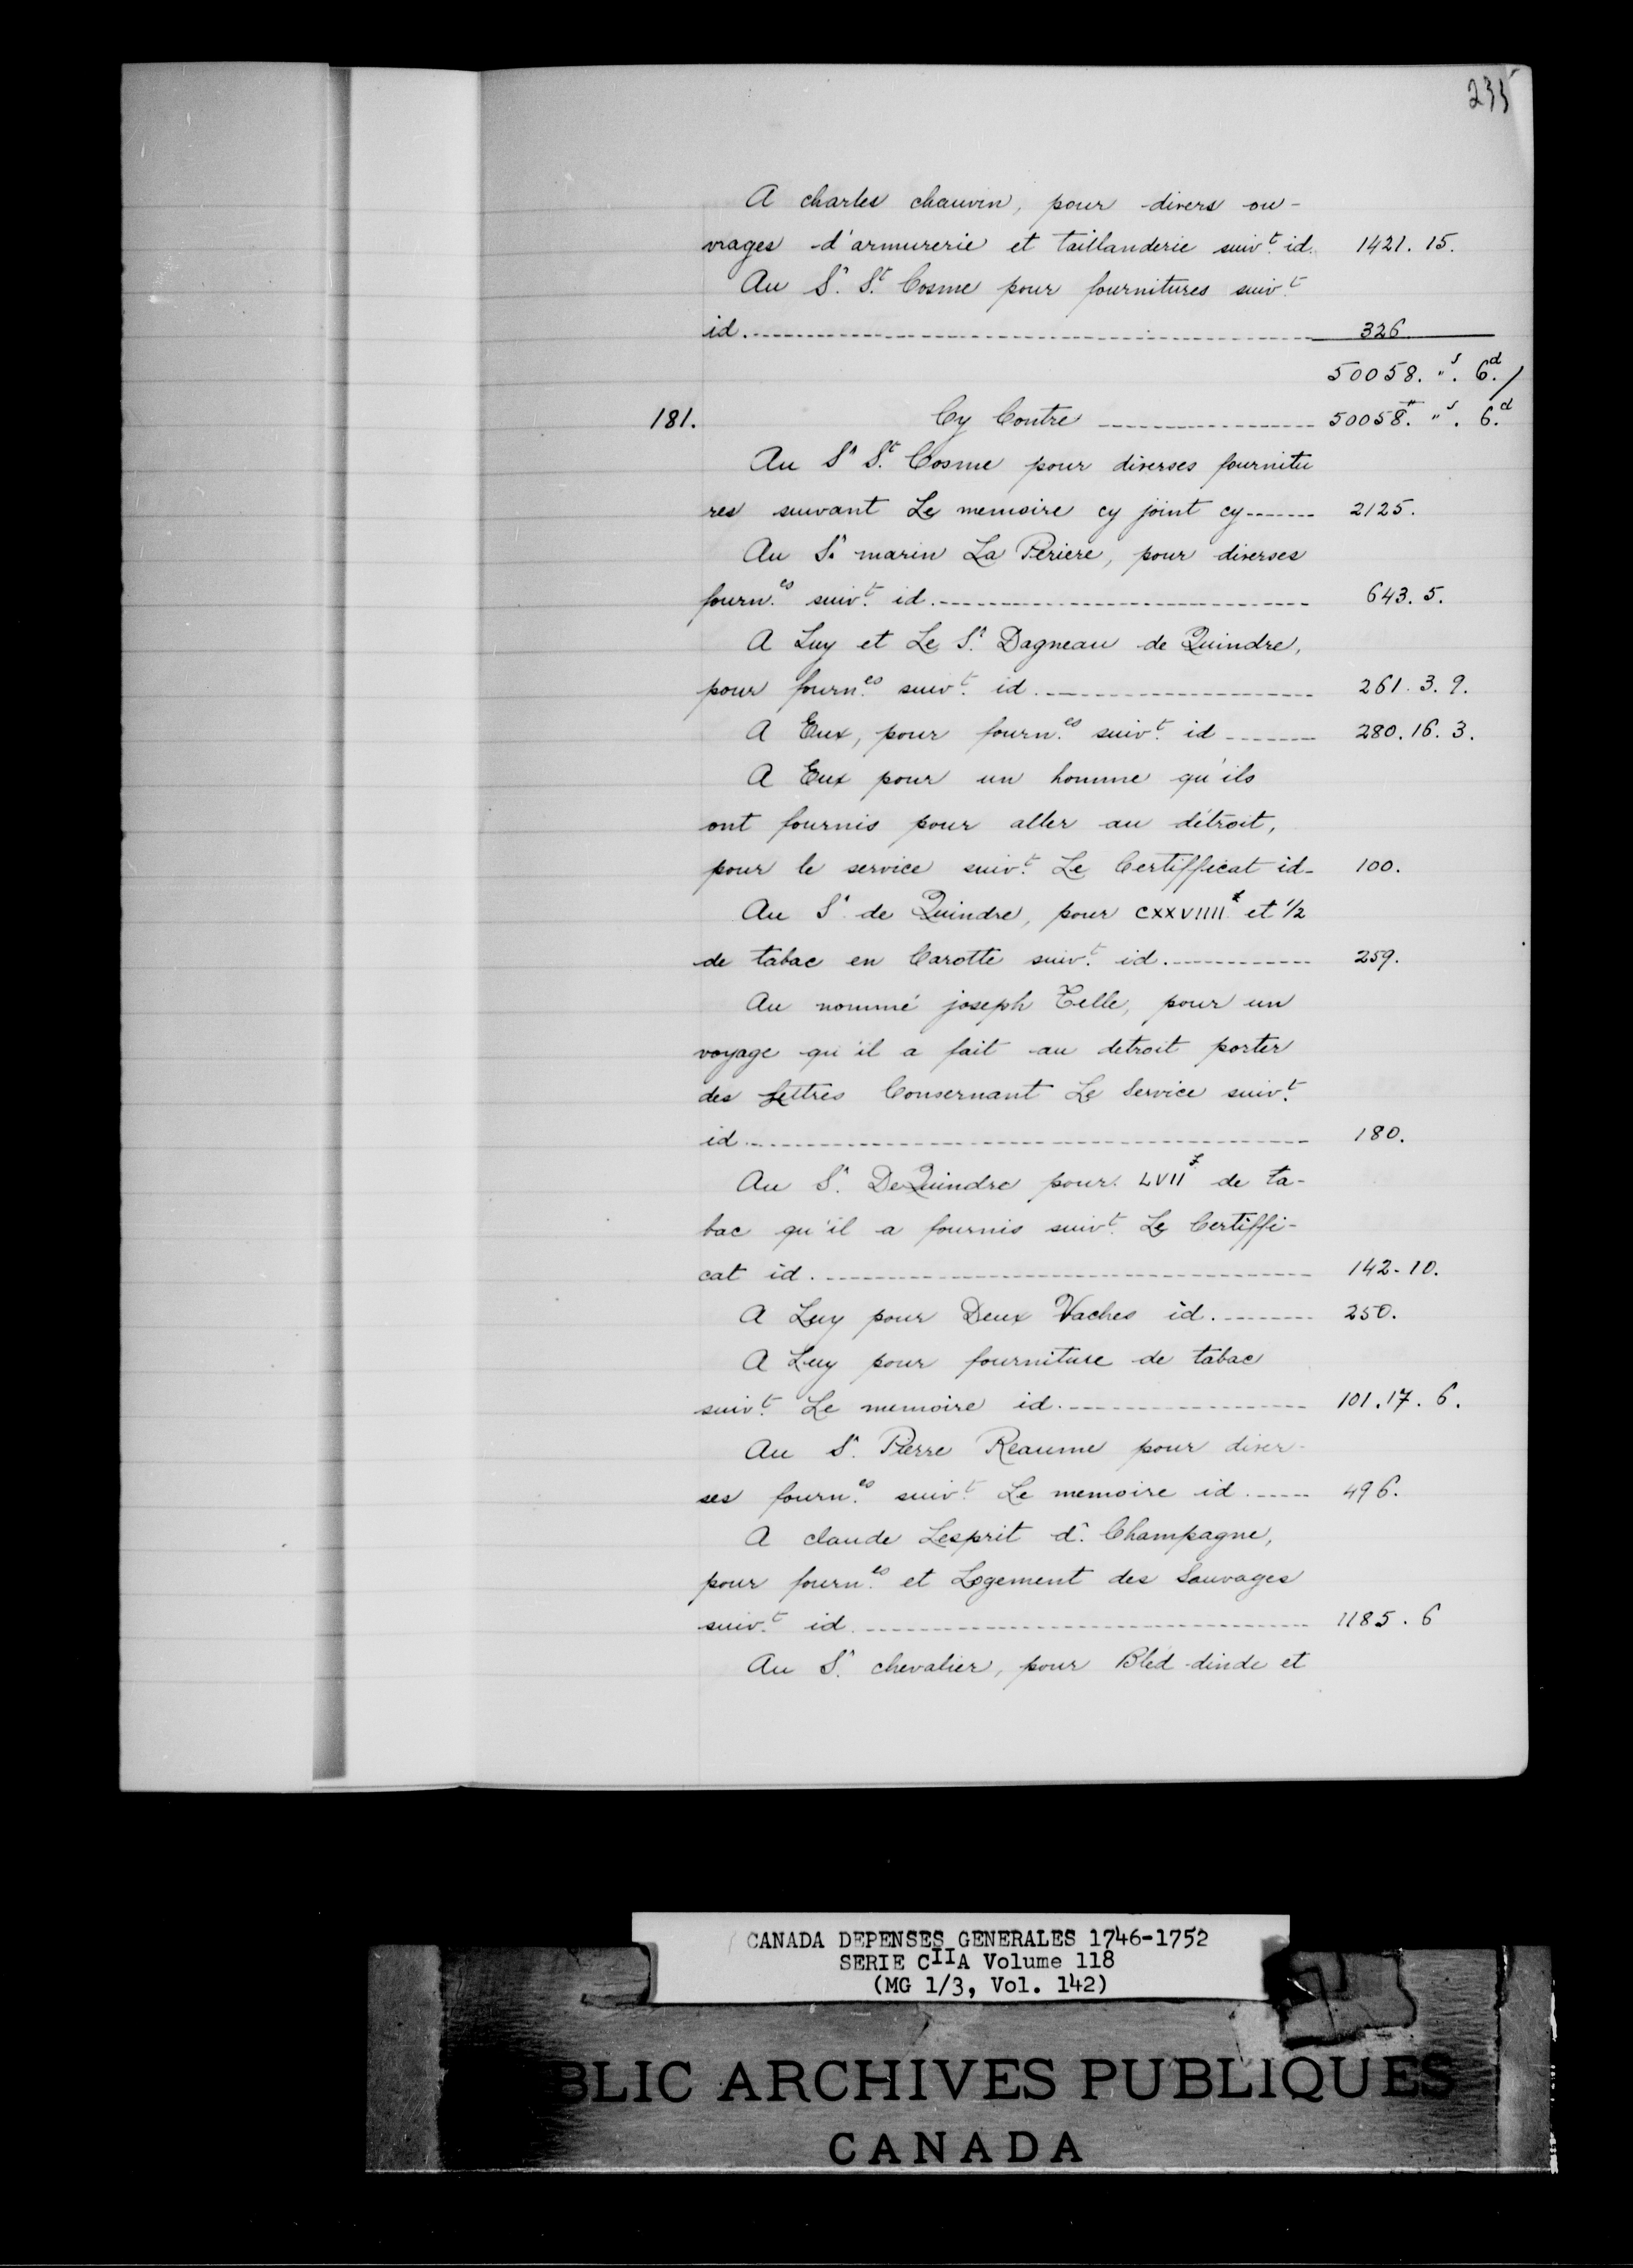 235
A charles chauvin, pour divers ou-
vrages d'armurerie et taillanderie suiv.t id. 1421. 15.
Au S.r S.t Cosme pour fournitures suiv.t
id. 326
50058. ". s 6.d /
181. Cy Contre 50058.tt ". s 6.d
Au S.r S.t Cosme pour diverses fournitu
res suivant Le memoire cy joint cy 2125.
Au S.r marin La Periere, pour diverses
fourn.es suiv.t id. 643. 5.
A Luy et Le S.r Dagneau de Quindre,
pour fourn.es suiv.t id. 261. 3. 9.
A Eux, pour fourn.es suiv.t id 280. 16. 3.
A Eux pour un homme qu'ils
ont fournis pour aller au détroit,
pour le service suiv.t Le Certifficat id- 100.
Au S.r de Quindre, pour CXXVIIII # et 1/2
de tabac en Carotte suiv.t id. 259.
Au nommé joseph Celle, pour un
voyage qu'il a fait au detroit porter
des Lettres Consernant Le Service suiv.t
id. 180.
Au S.r DeQuindre pour LVII # de ta-
bac qu'il a fournis suiv.t Le Certiffi-
cat id. 142-10.
A Luy pour Deux Vaches id. 250.
A Luy pour fourniture de tabac
suiv.t Le memoire id. 101. 17. 6.
Au S.r Pierre Reaume pour diver-
ses fourn.es suiv.t Le memoire id. 496.
A claude Lesprit d.t Champagne,
pour fourn.es et Logement des Sauvages
suiv.t id 1185. 6
Au S.r chevalier, pour Bléd dinde et
CANADA DEPENSES GENERALES 1746-1752
SERIE CIIA Volume 118
(MG 1/3, Vol. 142)
BLIC ARCHIVES PUBLIQUES
CANADA